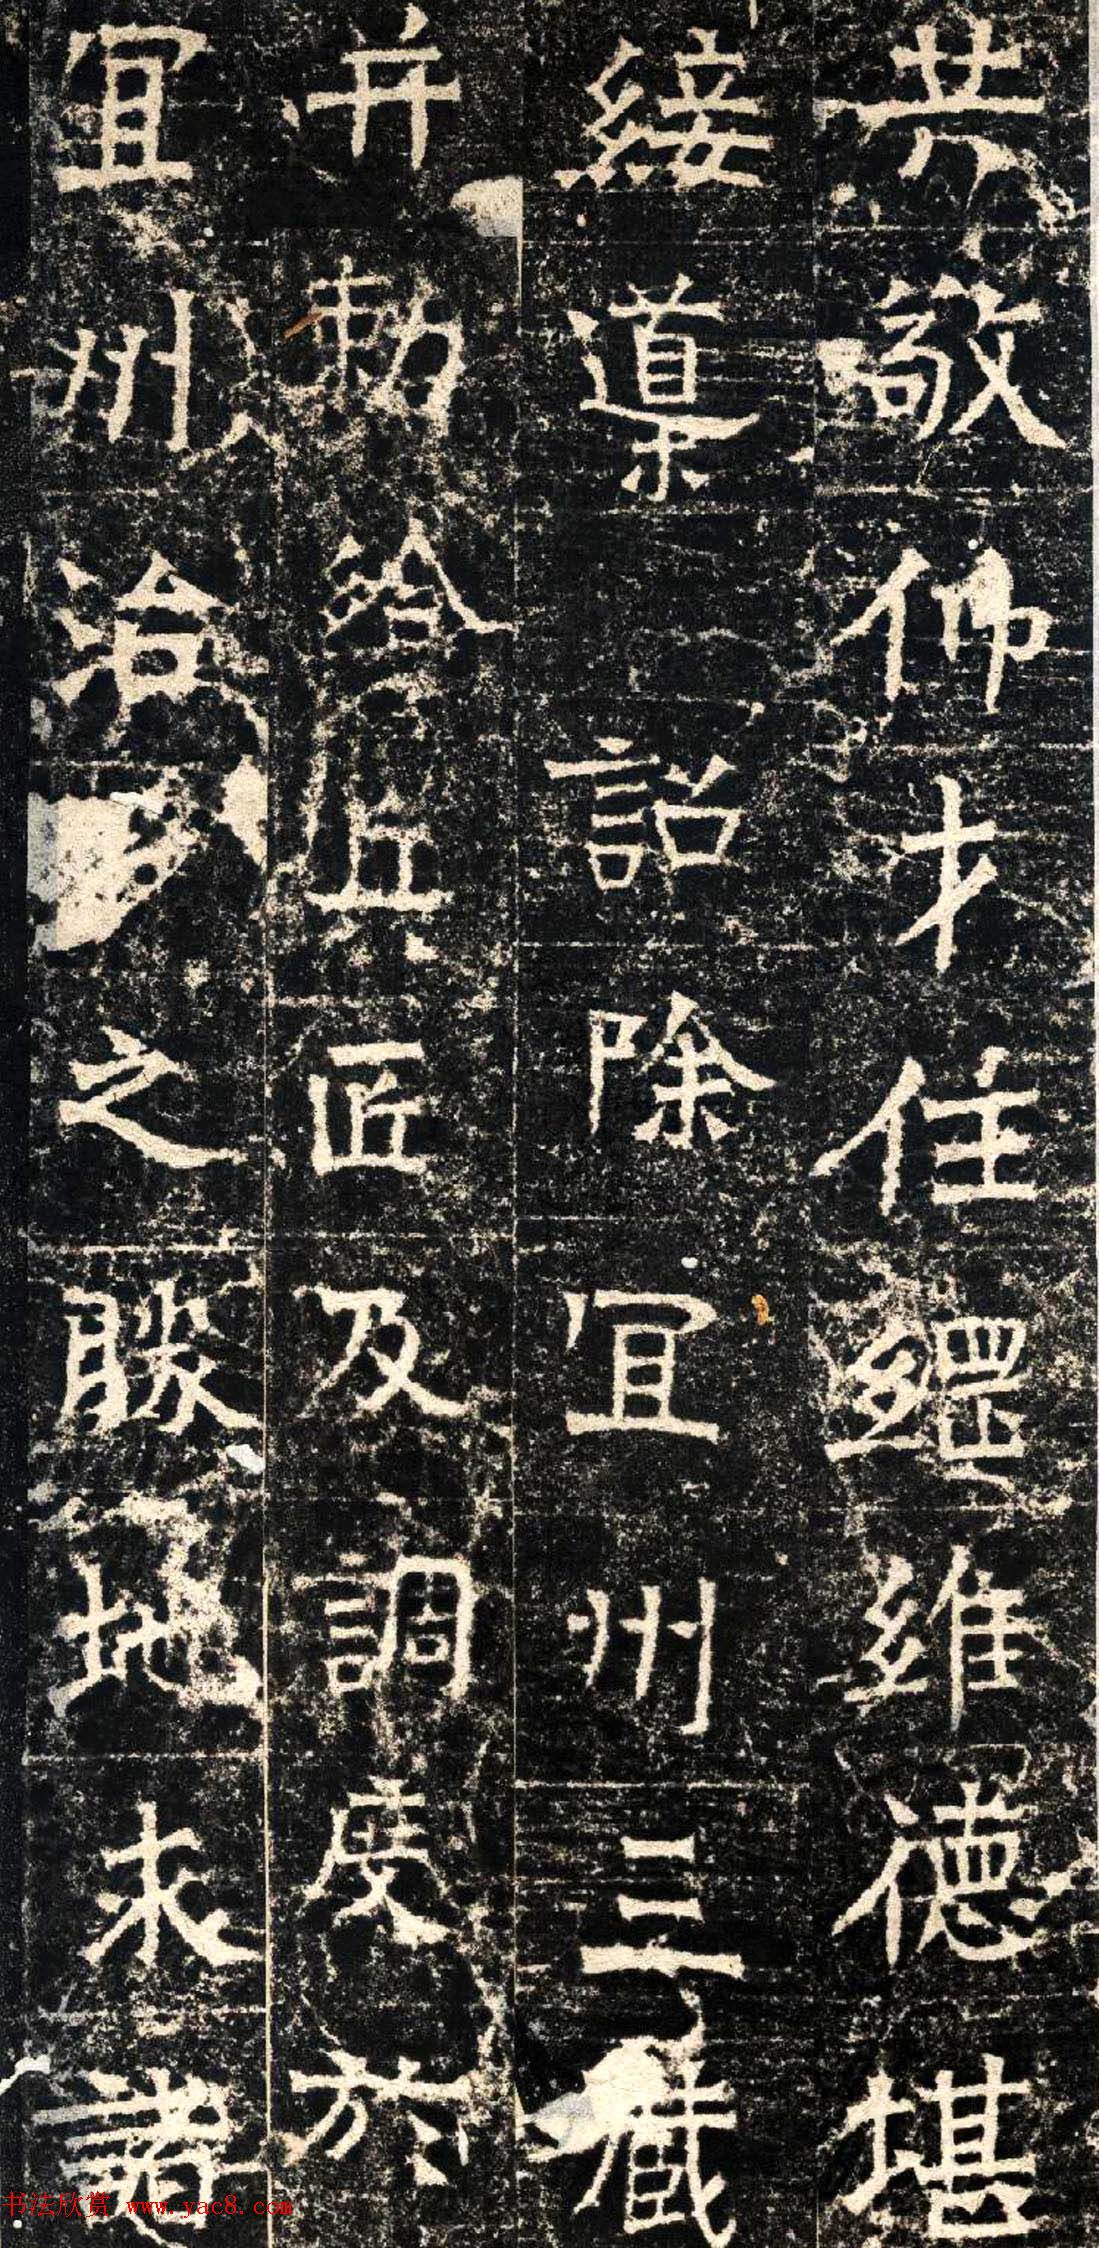 共敬仰才住纒維德堪
綏導詔除宜州三藏
并勅給丘匠及調度於
宜州冶之勝地永諸
书法欣赏 www.yac8.com